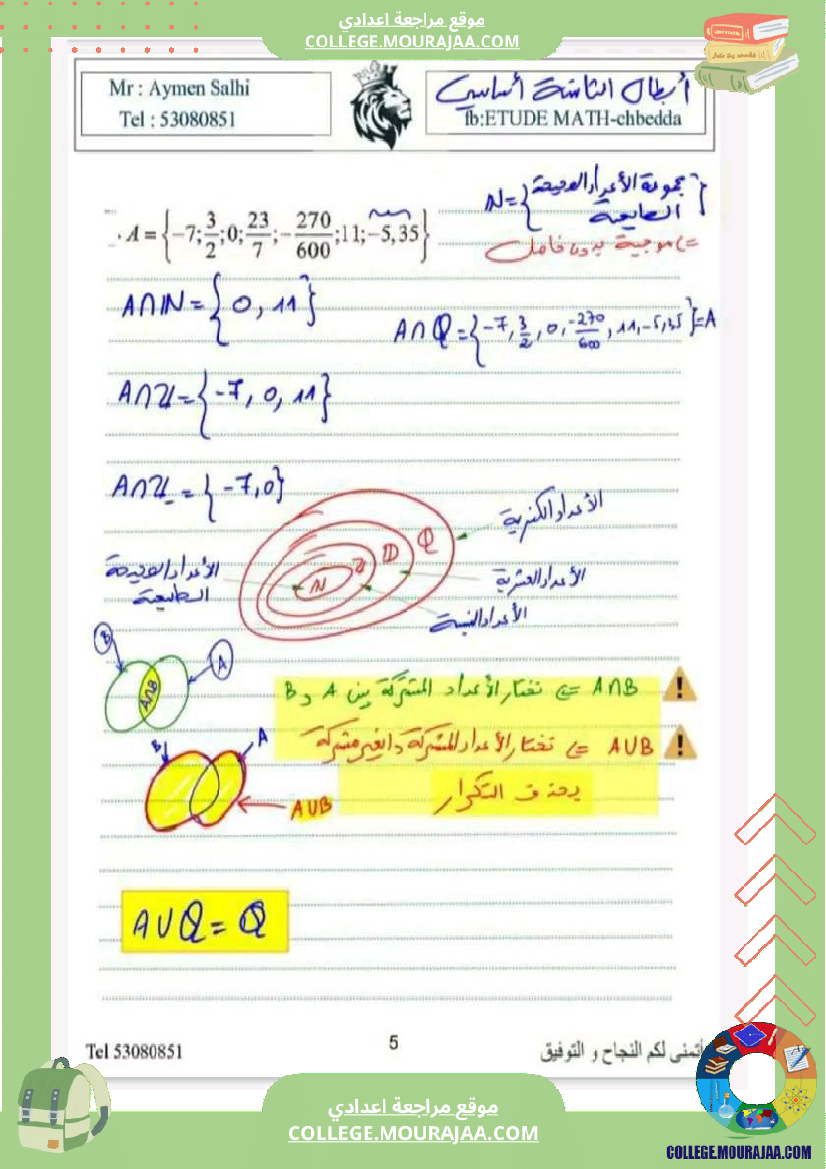 موقع مراجعة اعدادي
COLLEGE.MOURAJAA.COM
Mr : Aymen Salhi
Tel : 53080851
أبطال الثامنة أساسي
fb:ETUDE MATH-chbedda
N = { مجموعة الأعداد الصحيحة الطبيعية }
=) موجبة بدون فاصل
A = {-7; 3/2; 0; 23/7; -270/600; 11; -5,35}
A∩N = {0, 11}
A∩Q = {-7, 3/2, 0, -270/600, 11, -5,35} = A
A∩Z = {-7, 0, 11}
A∩Z_ = {-7, 0}
الأعداد الكسرية
Q
D
Z
N
الأعداد الصحيحة الطبيعية
الأعداد العشرية
الأعداد النسبية
B
A
A∩B
A∩B =) نختار الأعداد المشتركة بين A و B
B
A
A∪B =) نختار الأعداد المشتركة والغير مشتركة
A∪B
يحذف التكرار
A∪Q = Q
Tel 53080851
5
أتمنى لكم النجاح و التوفيق
موقع مراجعة اعدادي
COLLEGE.MOURAJAA.COM
COLLEGE.MOURAJAA.COM